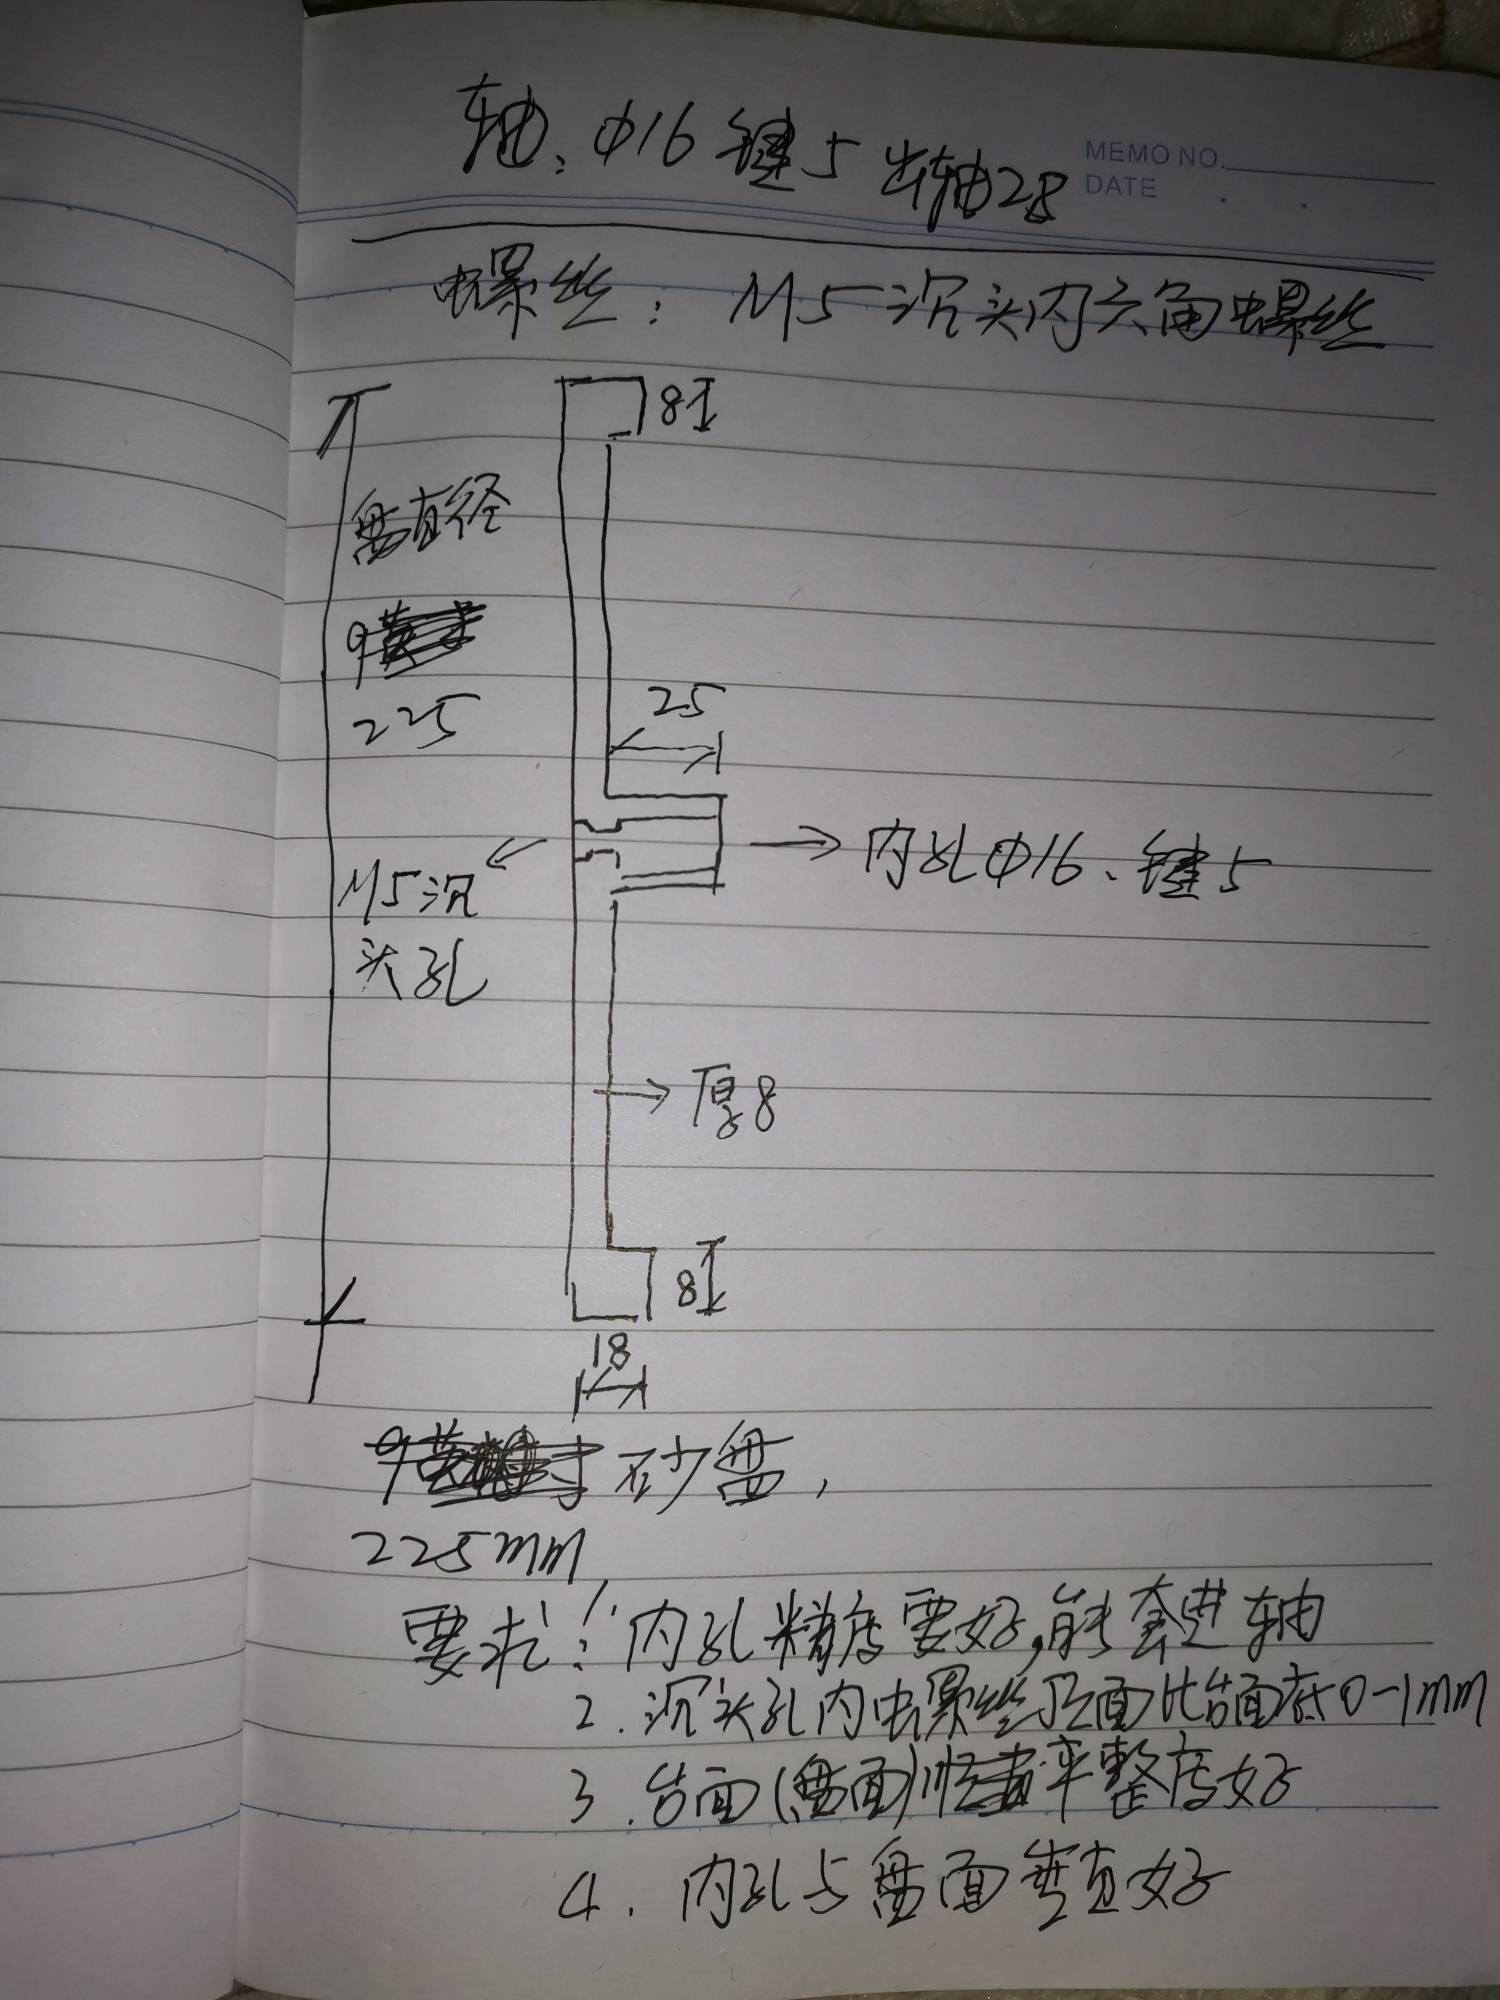 轴：Φ16 键5 出轴28
MEMO NO.
DATE
螺丝：M5沉头内六角螺丝
8
盘直径
225
25
M5沉
头孔
内孔Φ16、键5
厚8
8
18
砂盘，
225mm
要求：1.内孔精度要好，能套进轴
2.沉头孔内螺丝顶面比台面底0-1mm
3.台面(盘面)平整度好
4.内孔与盘面垂直好